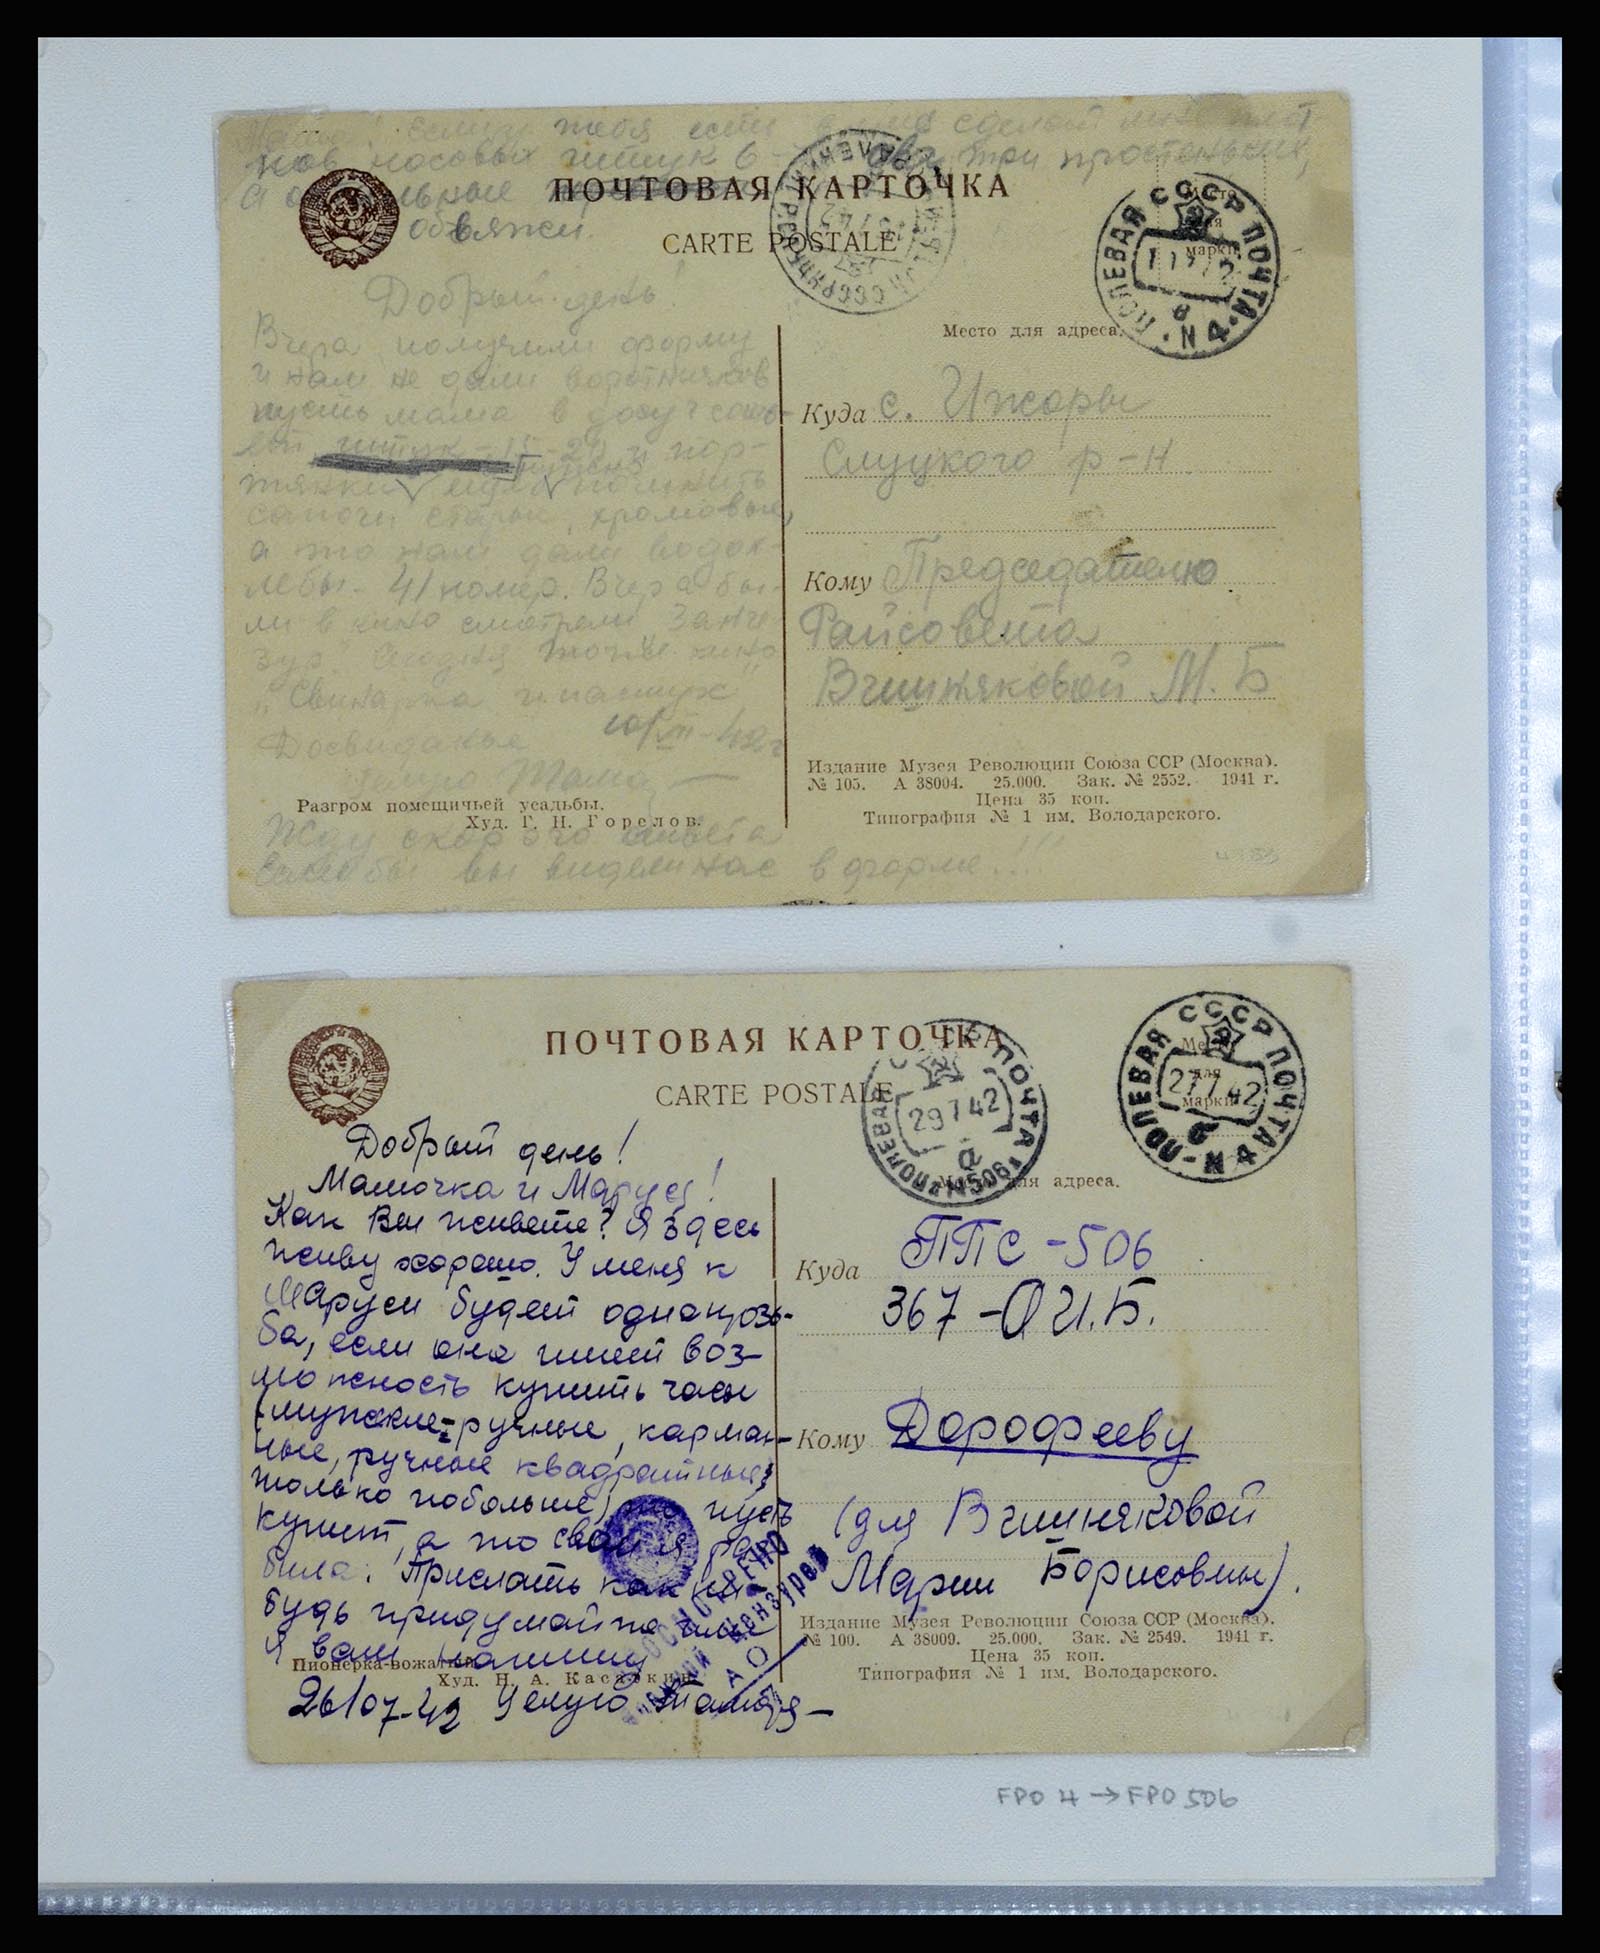 тебя есть сделай мне плат
ков носовых штук 6 два три простеньких,
А остальные
ПОЧТОВАЯ КАРТОЧКА
обвяжи.
CARTE POSTALE
СССР ПОЛЕВАЯ ПОЧТА
N 4
б
Место
для
марки
Добрый день!
Вчера получили форму
и нам не дали воротничков
пусть мама
штук
портянки
сапоги старые, хромовые,
а то нам дали
41 номер. Вчера бы-
ли в кино смотрели "Занге-
зур". Сегодня тоже кино
"Свинарка и пастух"
Досвиданье 10/VII-42г
Целую Тома
Место для адреса.
Куда с. Ижоры
Слуцкого р-н
Кому Председателю
Райсовета
Вчишняковой М. Б
Разгром помещичьей усадьбы.
Худ. Г. Н. Горелов.
Жду скорого ответа
Если бы вы видели нас в форме!!!
Издание Музея Революции Союза ССР (Москва).
№ 105. А 38004. 25.000. Зак. № 2552. 1941 г.
Цена 35 коп.
Типография № 1 им. Володарского.
ПОЧТОВАЯ КАРТОЧКА
CARTE POSTALE
ПОЛЕВАЯ ПОЧТА
29 7 42
а
506
СССР ПОЛЕВАЯ ПОЧТА
27 7 42
б
N 4
Место
для
марки
Добрый день!
Мамочка и Маруся!
Как Вы живете? Я здесь
живу хорошо. У меня к
Маруси будет одна прозь-
ба, если она имеет воз-
можность купить часы
(мужские-ручные, карман-
ные, ручные квадратные,
только побольше) то пусть
купит, а то свои я раз-
била. Прислать как ни-
будь придумайте
Я вам напишу
26/07-42 Целую Тамара
Место для адреса.
Куда ППС-506
367-О И.Б.
Кому Дорофееву
(для Вчишняковой
Марии Борисовны).
Пионерка-вожатый.
Худ. Н. А. Касаткин.
Издание Музея Революции Союза ССР (Москва).
№ 100. А 38009. 25.000. Зак. № 2549. 1941 г.
Цена 35 коп.
Типография № 1 им. Володарского.
FPO 4 → FPO 506